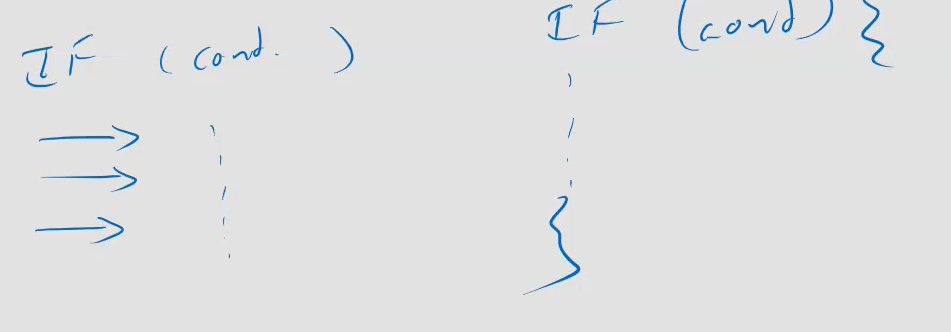 IF (cond. )
IF (cond) {
}